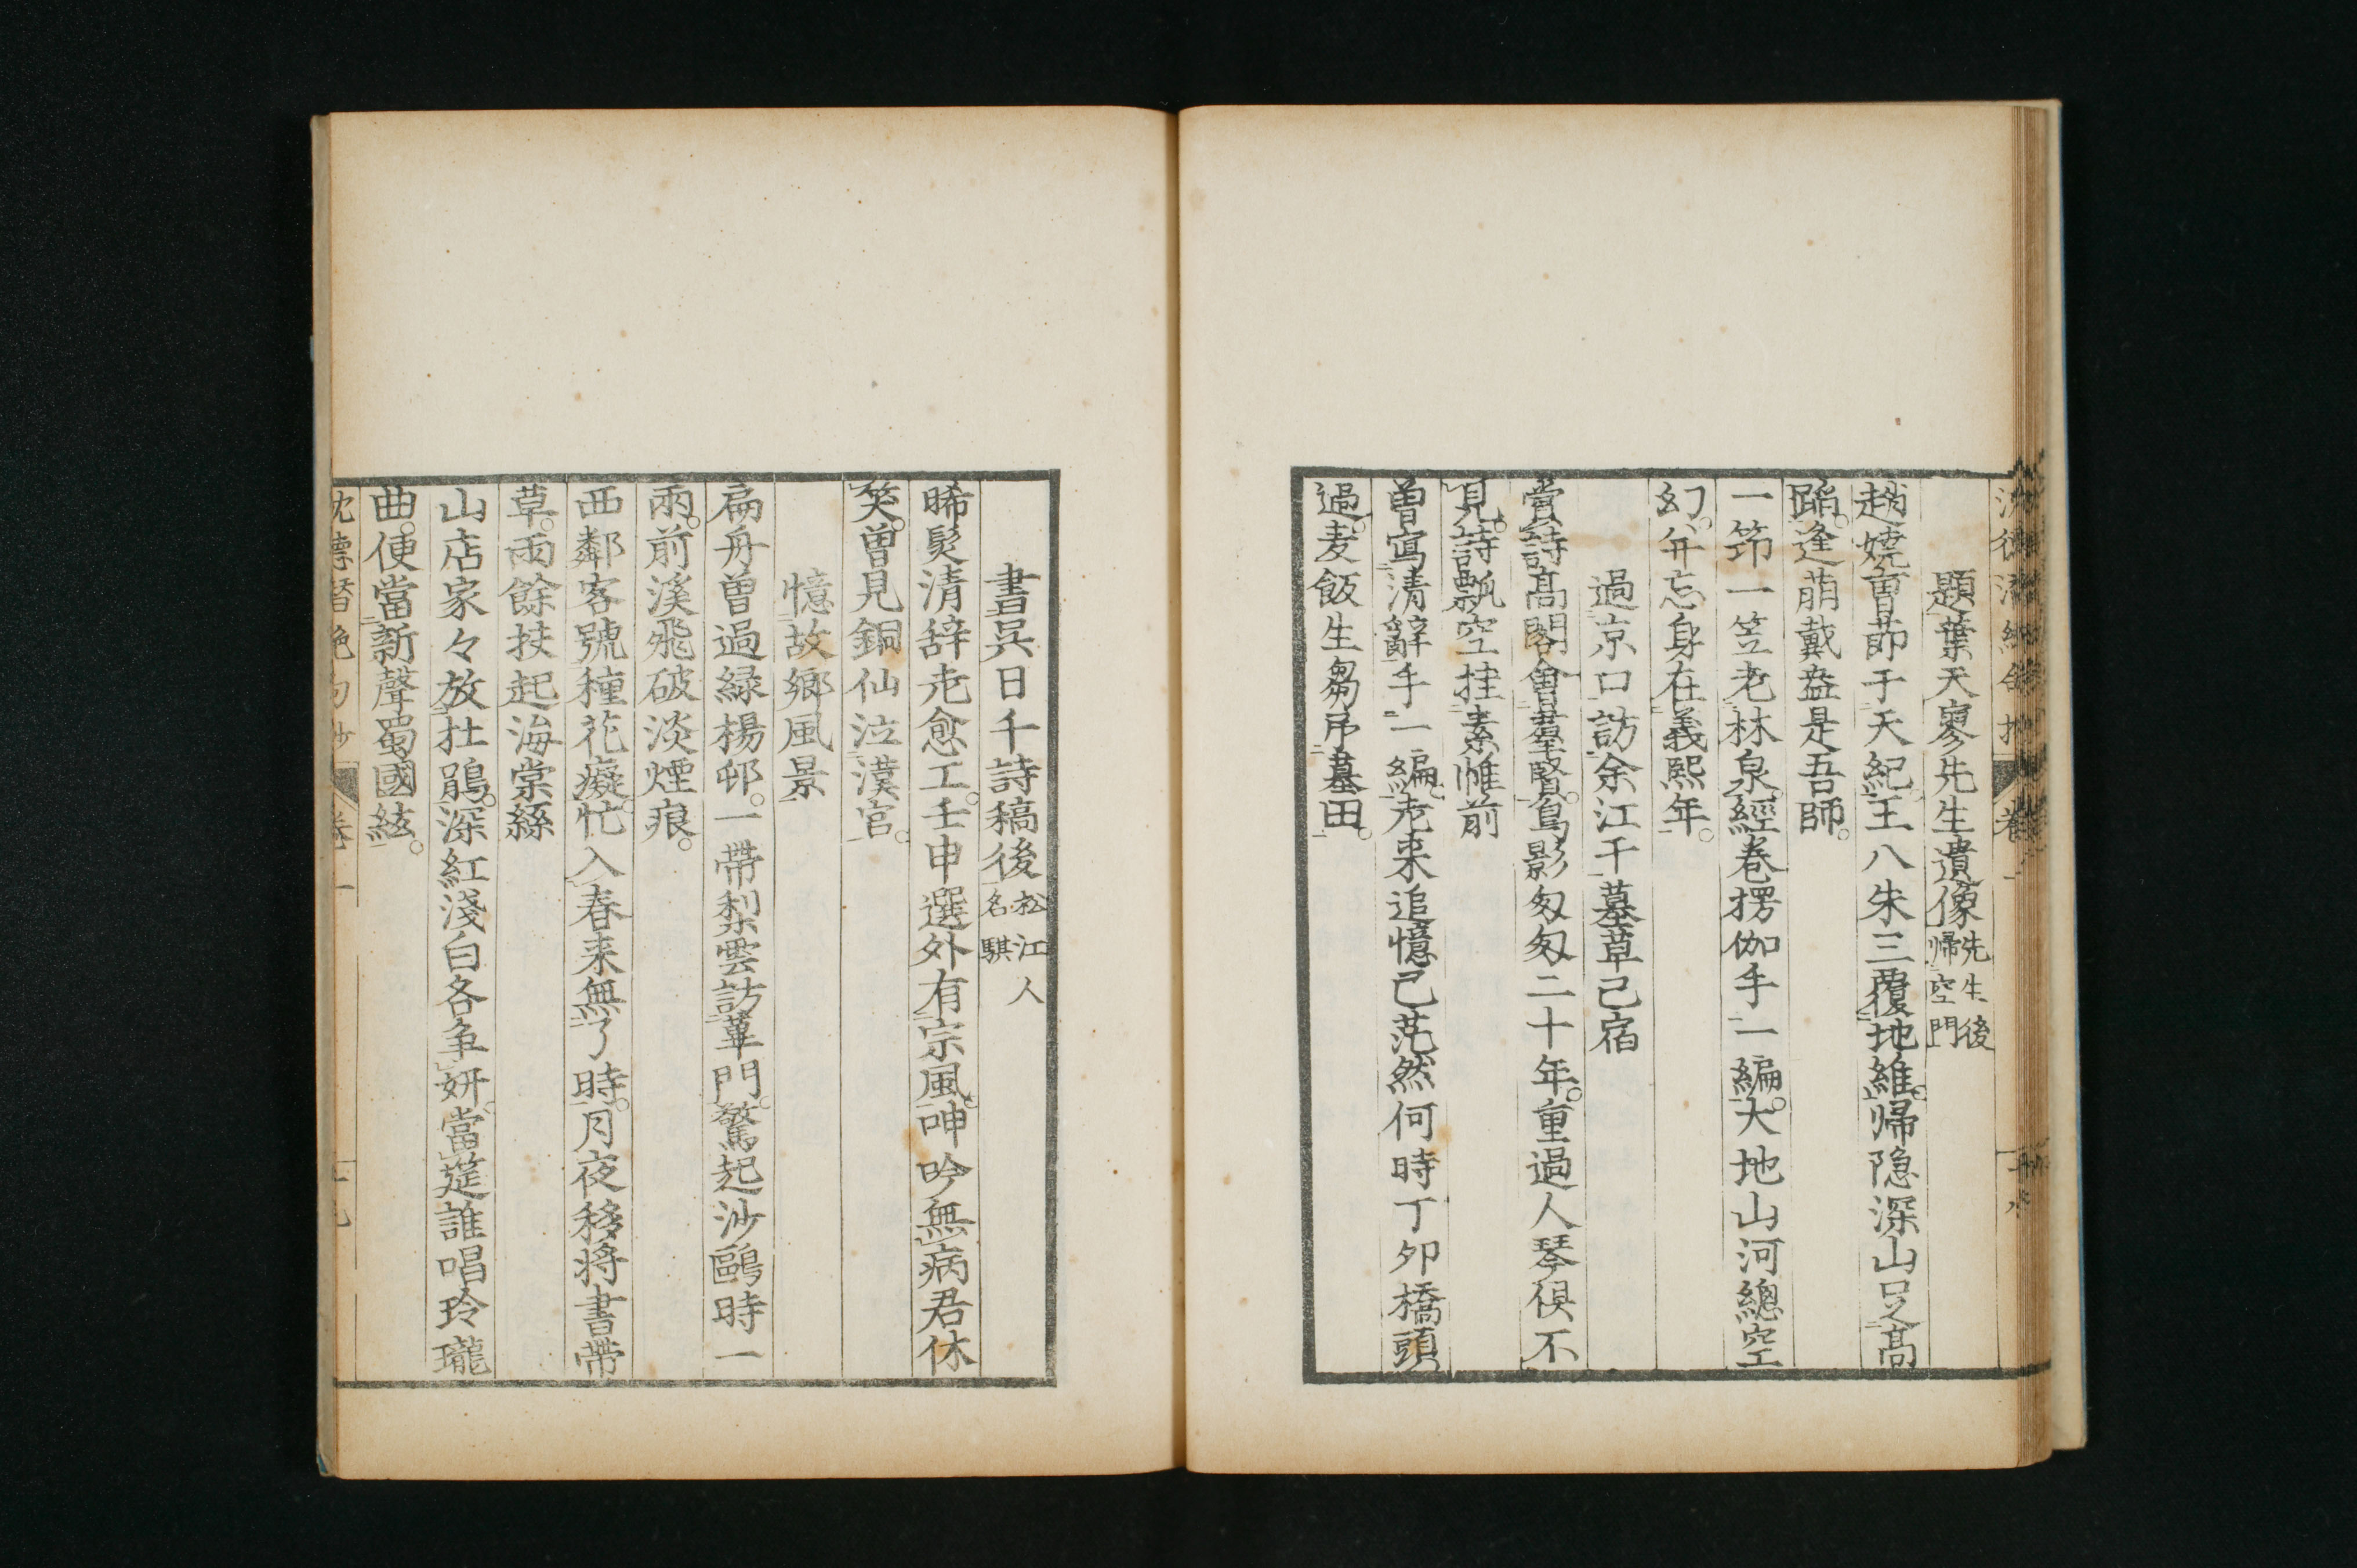 題葉天寥先生遺像先生後帰空門
趙嬈曹節于天紀王八朱三覆地維帰隐深山足高
蹈逢萠戴盎是吾師
一笻一笠老林泉經卷楞伽手一編大地山河總空
幻年忘身在義熙年
過京口訪余江干墓草已宿
賞詩高閣會羣賢鳥影匆匆二十年重過人琴俱不
見詩瓢空挂素帷前
曽寫清辭手一編老来追憶已茫然何時丁夘橋頭
過麦飯生芻吊墓田
書吳日千詩稿後松江人名騏
晞髮清辞老愈工壬申選外有宗風呻吟無病君休
笑曽見銅仙泣漢宫
憶故鄉風景
扁舟曽過緑楊邨一帶梨雲訪蓽門驚起沙鷗時一
兩前溪飛破淡煙痕
西鄰客號種花癡忙入春来無了時月夜移将書帶
草雨餘扶起海棠絲
山店家々放杜鵑深紅淺白各争妍當筵誰唱玲瓏
曲便當新聲蜀國絃
沈德潜絶句抄 卷一 十九